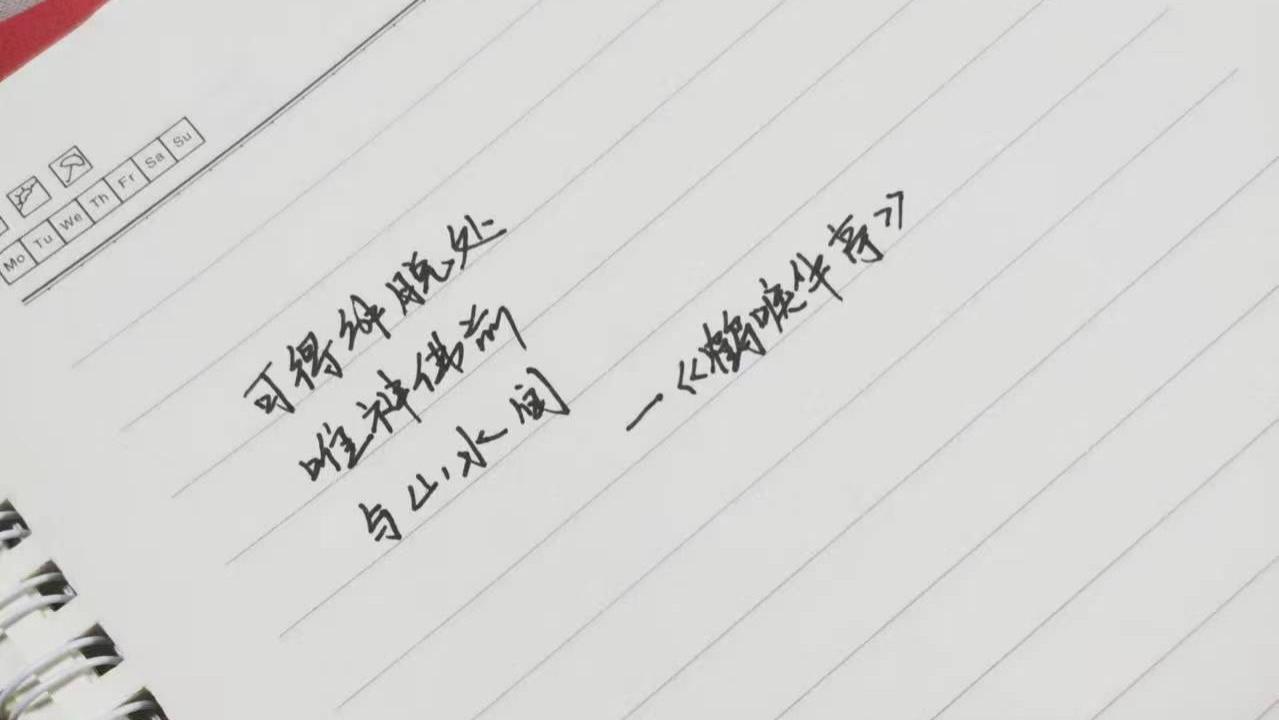 Mo Tu We Th Fr Sa Su
可得解脱处
唯神佛前
与山水间
—《鹤唳华亭》